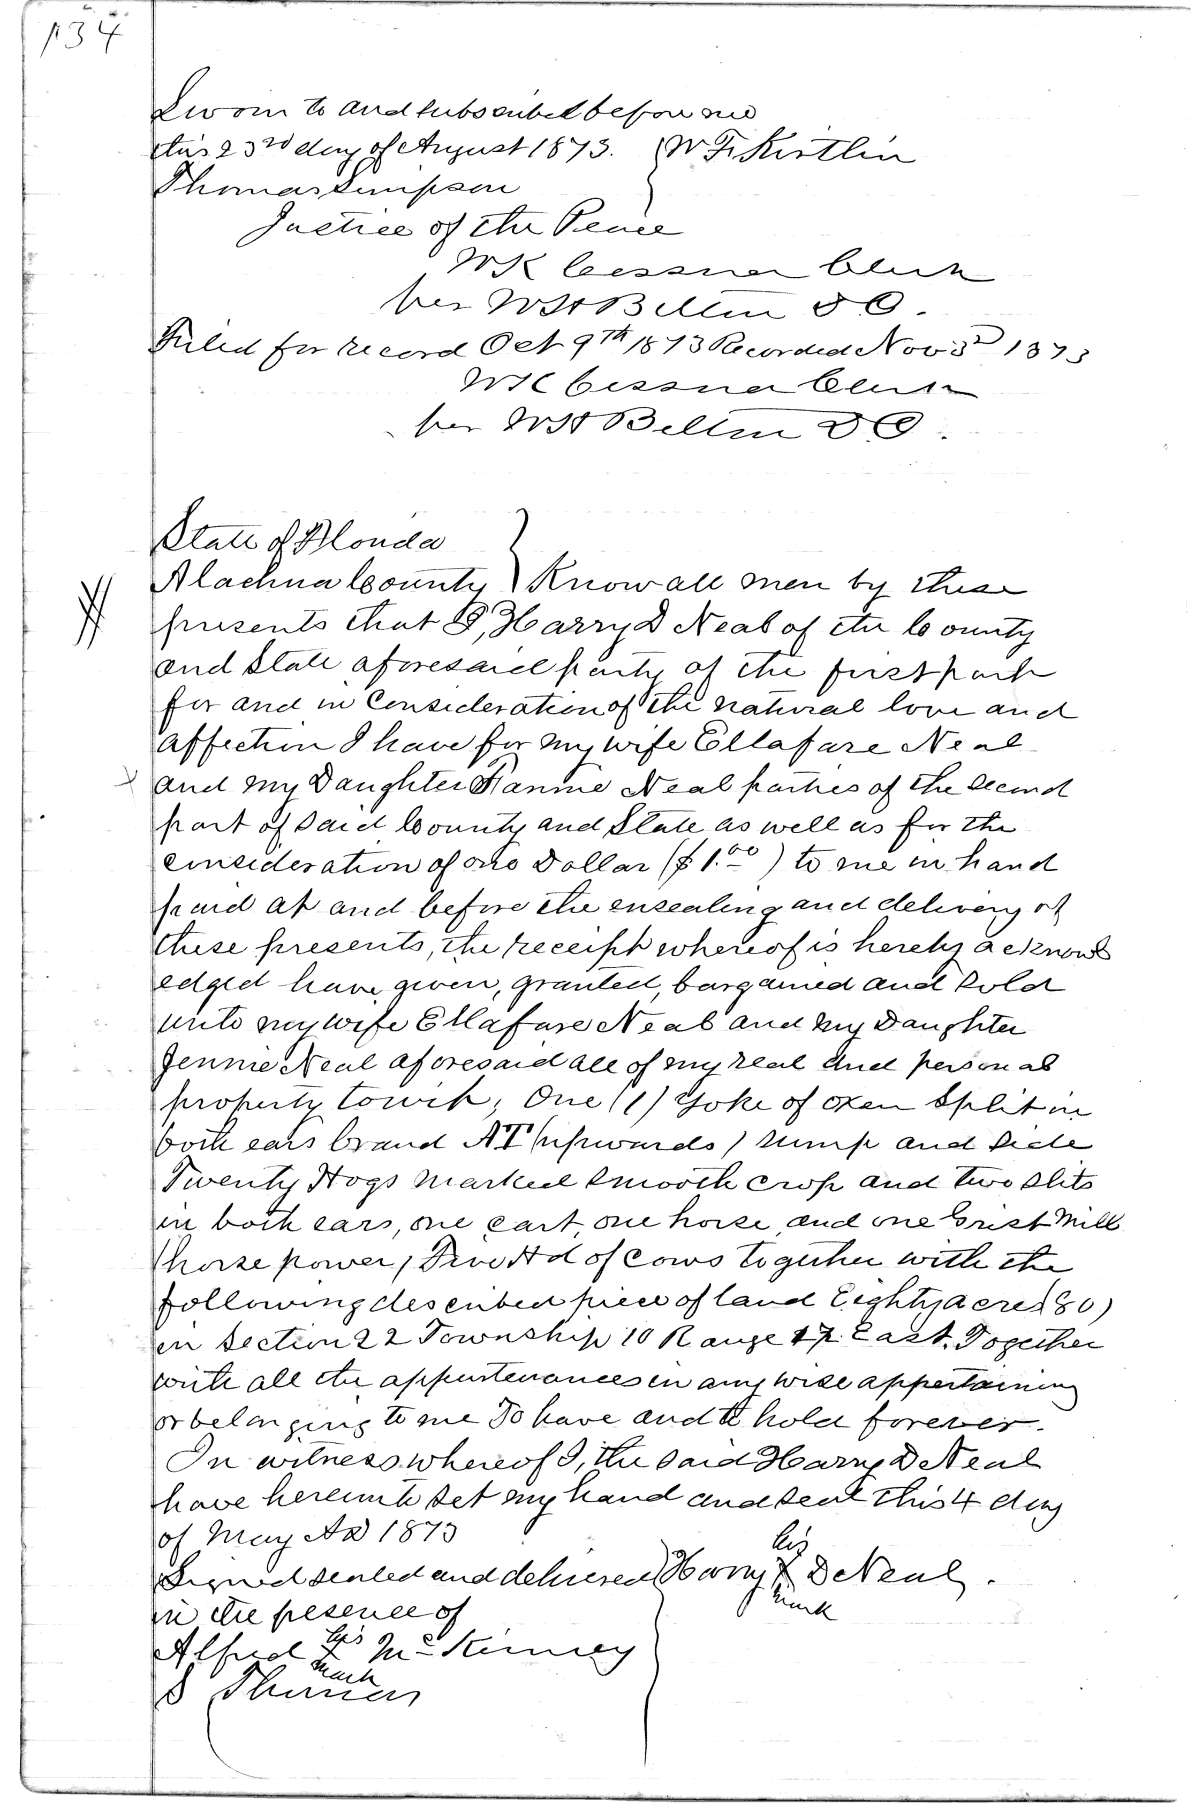 134
Sworn to and subscribed before me
this 23rd day of August 1873. W F Kirtlin
Thomas Simpson
Justice of the Peace
WK Cessna Clerk
per WH Belton DC.
Filed for record Oct 9th 1873 Recorded Nov 3d 1873
WK Cessna Clerk
per WH Belton DC.
State of Florida
Alachua County } Know all men by these
presents that I, Harry D Neal of the County
and State aforesaid party of the first part
for and in Consideration of the natural love and
affection I have for my wife Ellafare Neal
and my Daughter Fannie Neal parties of the second
part of said County and State as well as for the
consideration of one Dollar ($1.00) to me in hand
paid at and before the ensealing and delivery of
these presents, the receipt whereof is hereby acknowl
edged have given, granted, bargained and sold
unto my wife Ellafare Neal and my Daughter
Jennie Neal aforesaid all of my real and personal
property towit, One (1) Yoke of oxen Split in
both ears brand AT (upwards) rump and side
Twenty Hogs marked smooth crop and two slits
in both ears, one cart, one horse, and one Grist Mill
(horse power) Five Hd of Cows together with the
following described piece of land Eighty acres (80)
in Section 22 Township 10 Range 17 East. Together
with all the appurtenances in any wise appertaining
or belonging to me To have and to hold forever.
In witness whereof I, the said Harry D Neal
have hereunto set my hand and seal this 4 day
of May AD 1873
his
Signed sealed and delivered } Harry X D Neal.
mark
in the presence of
his
Alfred X McKinney
mark
S Thomas